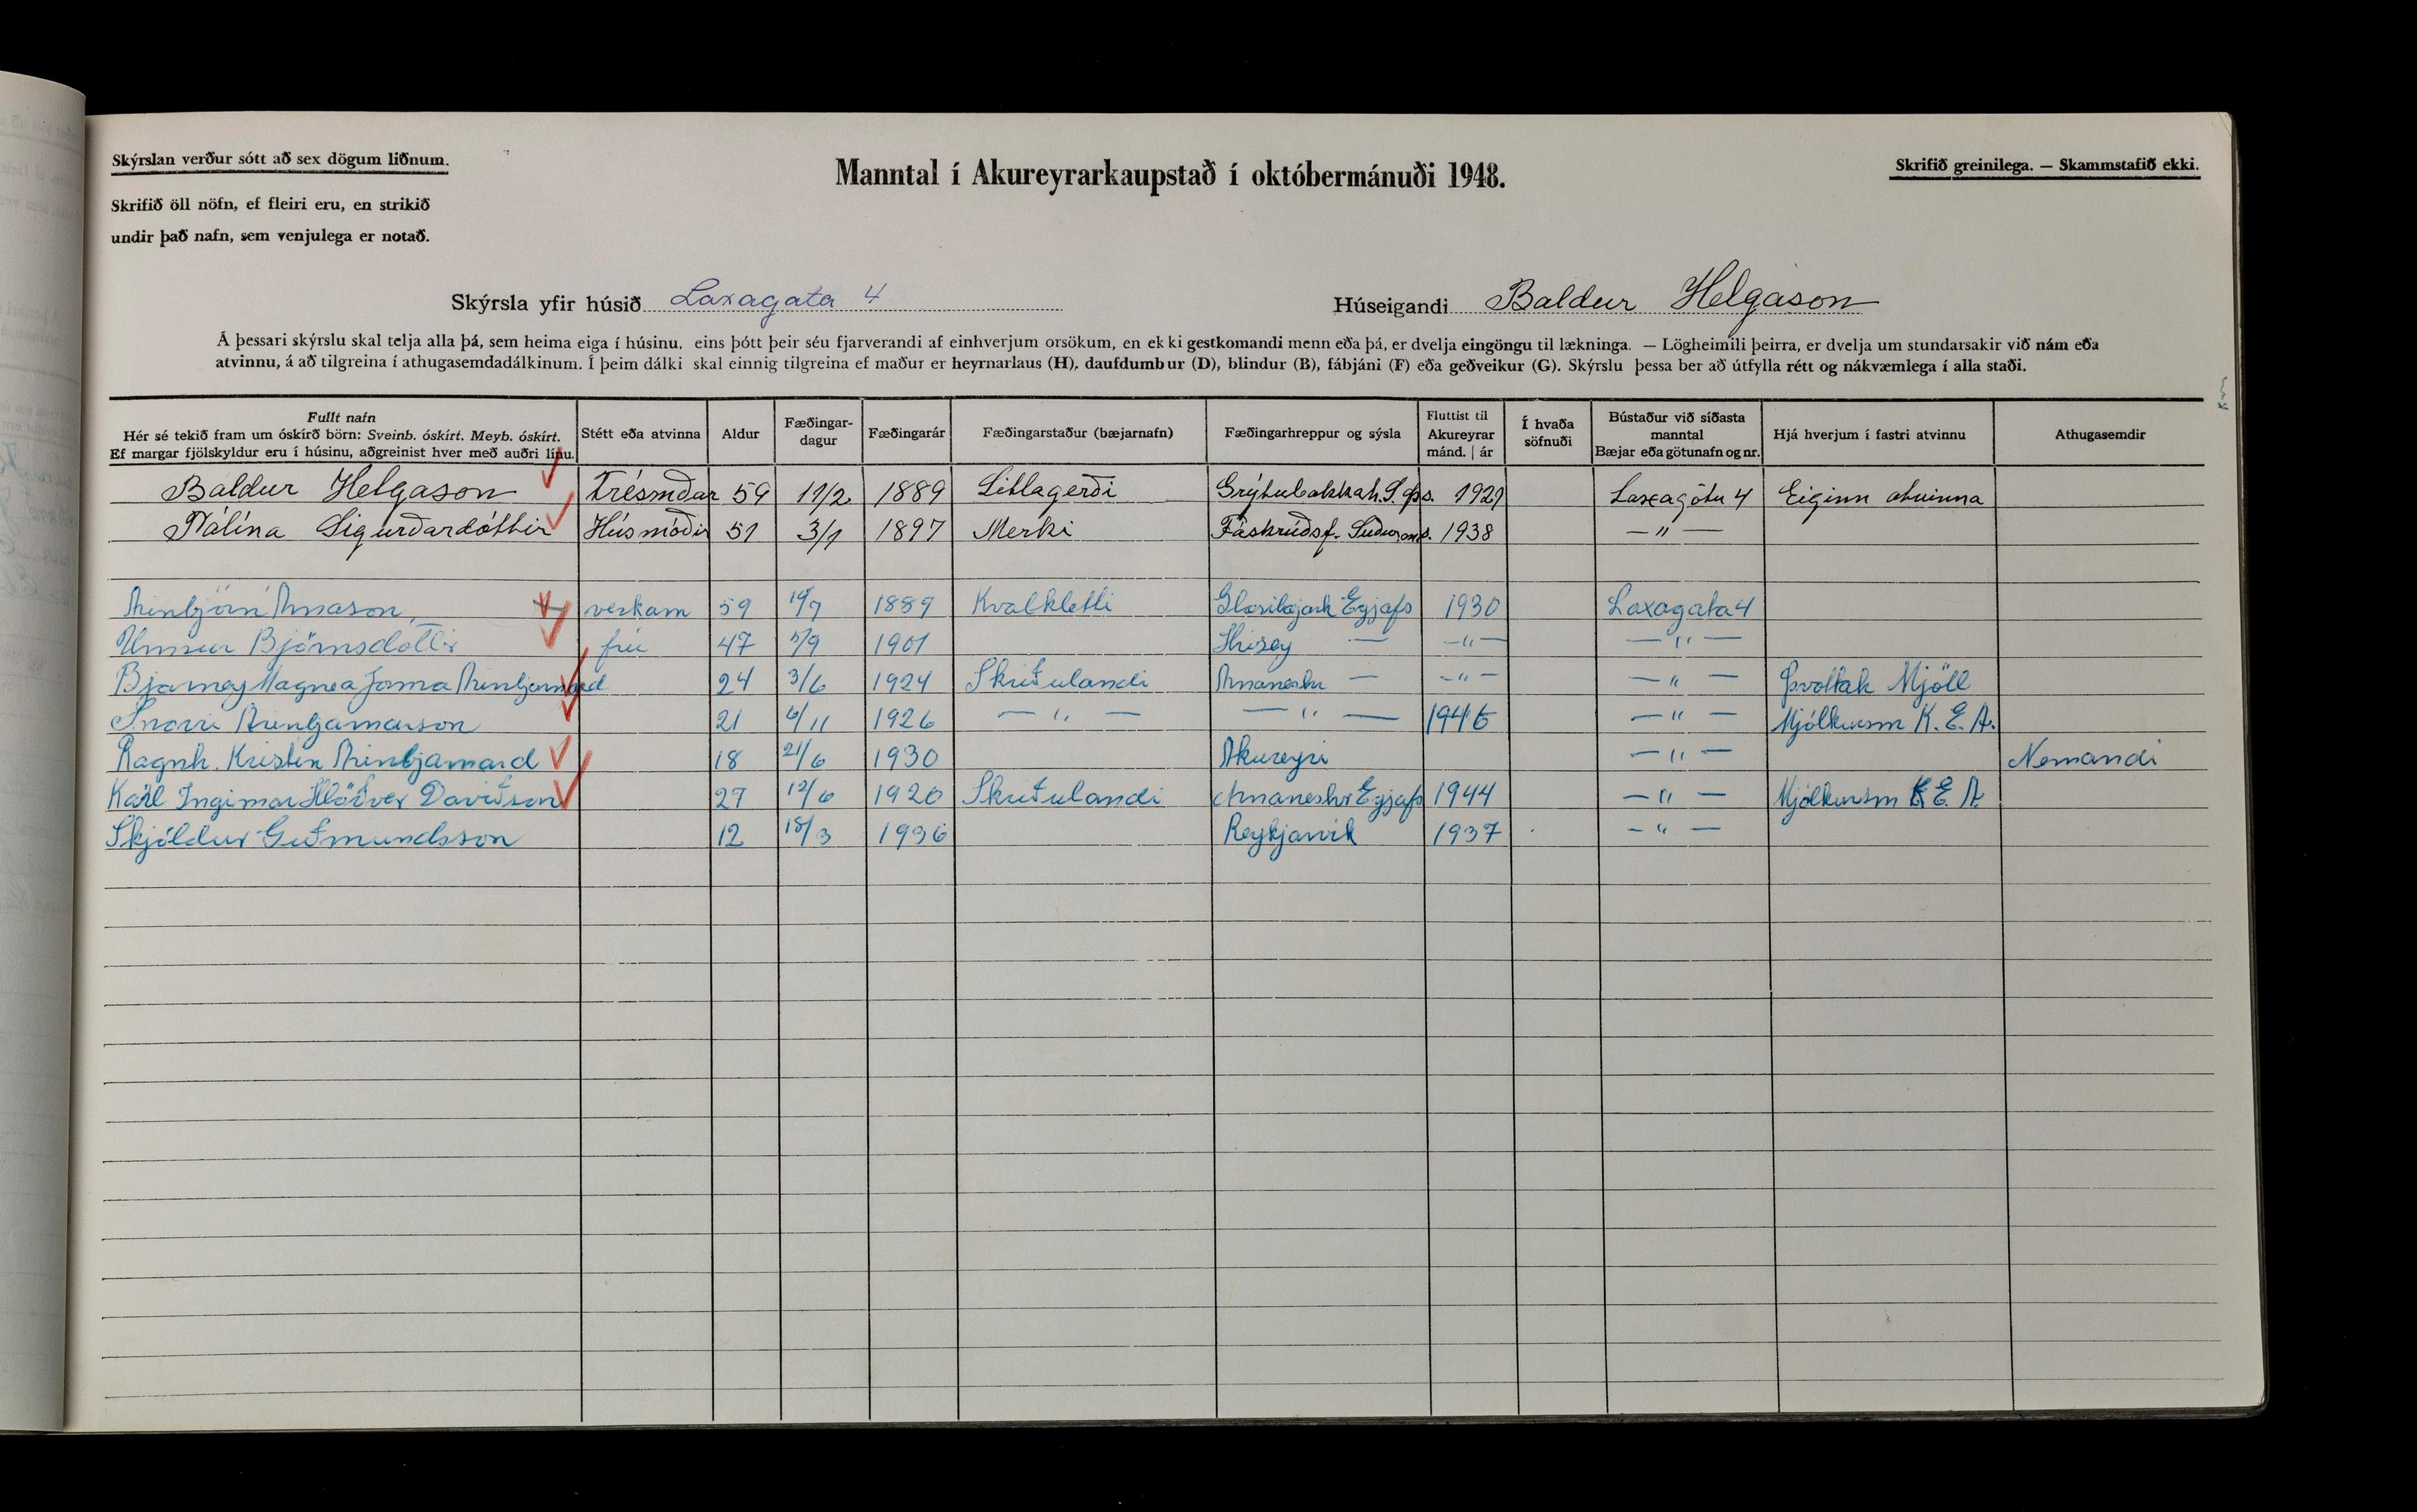 Skýrslan verður sótt að sex dögum liðnum.
Manntal í Akureyrarkaupstað í októbermánuði 1948.
Skrifið greinilega. — Skammstafið ekki.
Skrifið öll nöfn, ef fleiri eru, en strikið
undir það nafn, sem venjulega er notað.
Skýrsla yfir húsið Laxagata 4 Húseigandi Baldur Helgason
Á þessari skýrslu skal telja alla þá, sem heima eiga í húsinu, eins þótt þeir séu fjarverandi af einhverjum orsökum, en ekki gestkomandi menn eða þá, er dvelja eingöngu til lækninga. — Lögheimili þeirra, er dvelja um stundarsakir við nám eða
atvinnu, á að tilgreina í athugasemdadálkinum. Í þeim dálki skal einnig tilgreina ef maður er heyrnarlaus (H), daufdumbur (D), blindur (B), fábjáni (F) eða geðveikur (G). Skýrslu þessa ber að útfylla rétt og nákvæmlega í alla staði.
Fullt nafn
Hér sé tekið fram um óskírð börn: Sveinb. óskírt. Meyb. óskírt.
Ef margar fjölskyldur eru í húsinu, aðgreinist hver með auðri línu.
Stétt eða atvinna
Aldur
Fæðingar-
dagur
Fæðingarár
Fæðingarstaður (bæjarnafn)
Fæðingarhreppur og sýsla
Fluttist til
Akureyrar
mánd. | ár
Í hvaða
söfnuði
Bústaður við síðasta
manntal
Bæjar eða götunafn og nr.
Hjá hverjum í fastri atvinnu
Athugasemdir
Baldur Helgason Trésmðar 59 11/2 1889 Litlagerði Grýtubakkah. S. þs. 1929 Laxagötu 4 Eiginn atvinna
Pálína Sigurðardóttir Húsmóðir 51 3/1 1897 Merki Fáskrúðsf. 1938 — " —
Arinbjörn Árnason verkam 59 19/7 1889 Kvalkletti Glæsibæjark Eyjafs 1930 Laxagata 4
Unnur Björnsdóttir frú 47 5/9 1901 Hrísey — — " — — " —
Bjarney Magnea Jóna Arinbjarnard 24 3/6 1924 Skriðulandi Arnaneshr — — " — — " — Þvottah Mjöll
Snorri Arinbjarnarson 21 6/11 1926 — " — — " — 1946 — " — Mjólkursm K. E. A.
Ragnh. Kristín Arinbjarnard 18 21/6 1930 Akureyri — " — Nemandi
Karl Ingimar Hlöðver Davíðsson 27 12/6 1920 Skriðulandi Arnaneshr Eyjafs 1944 — " — Mjólkursm K E. A.
Skjöldur Guðmundsson 12 18/3 1936 Reykjavík 1937 — " —